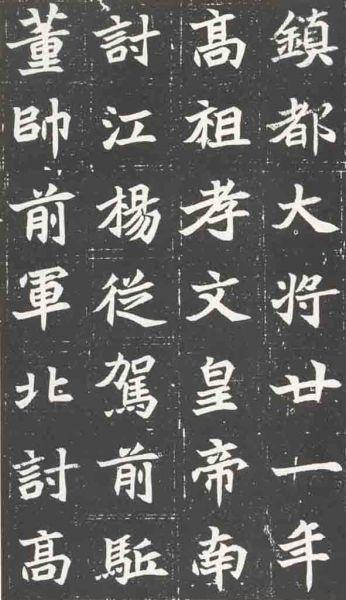 鎮都大将廿一年
髙祖孝文皇帝南
討江楊從駕前駈
董帥前軍北討高